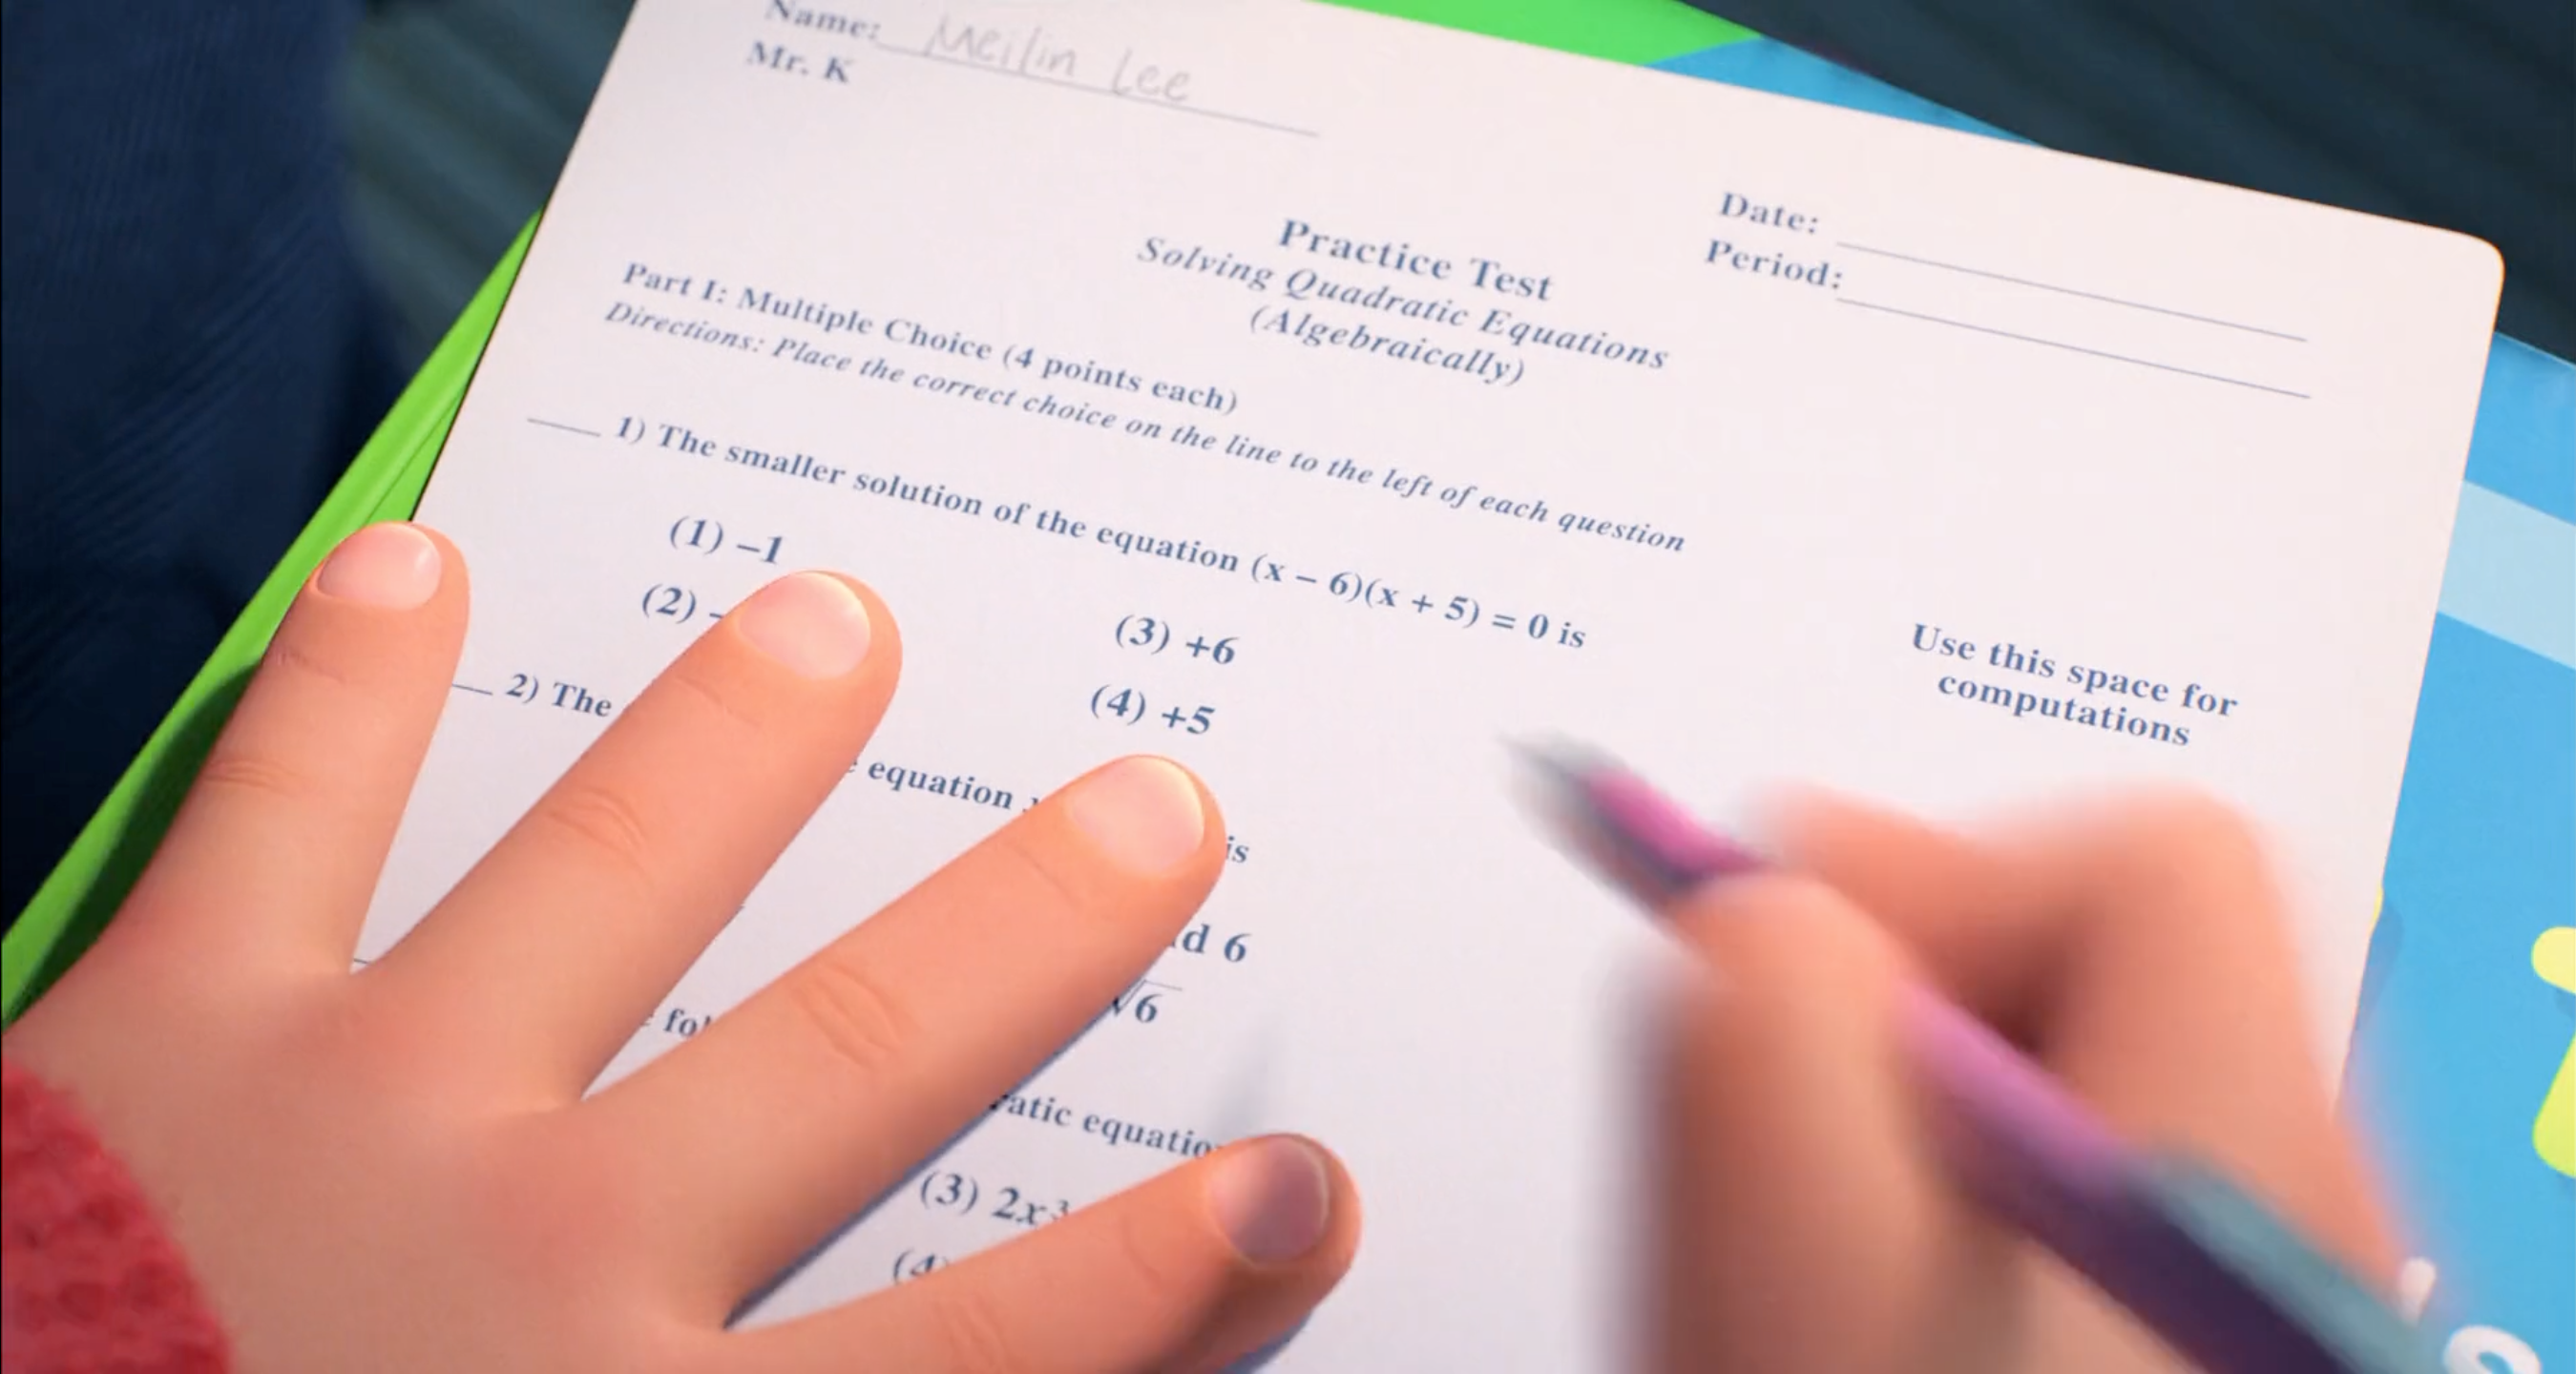 Name: Meilin Lee
Mr. K
Date:
Period:
Practice Test
Solving Quadratic Equations
(Algebraically)
Part I: Multiple Choice (4 points each)
Directions: Place the correct choice on the line to the left of each question
1) The smaller solution of the equation (x – 6)(x + 5) = 0 is
(1) –1
(2) -
(3) +6
(4) +5
Use this space for
computations
2) The equation is
6
√6
equation
(3) 2x³
(4)